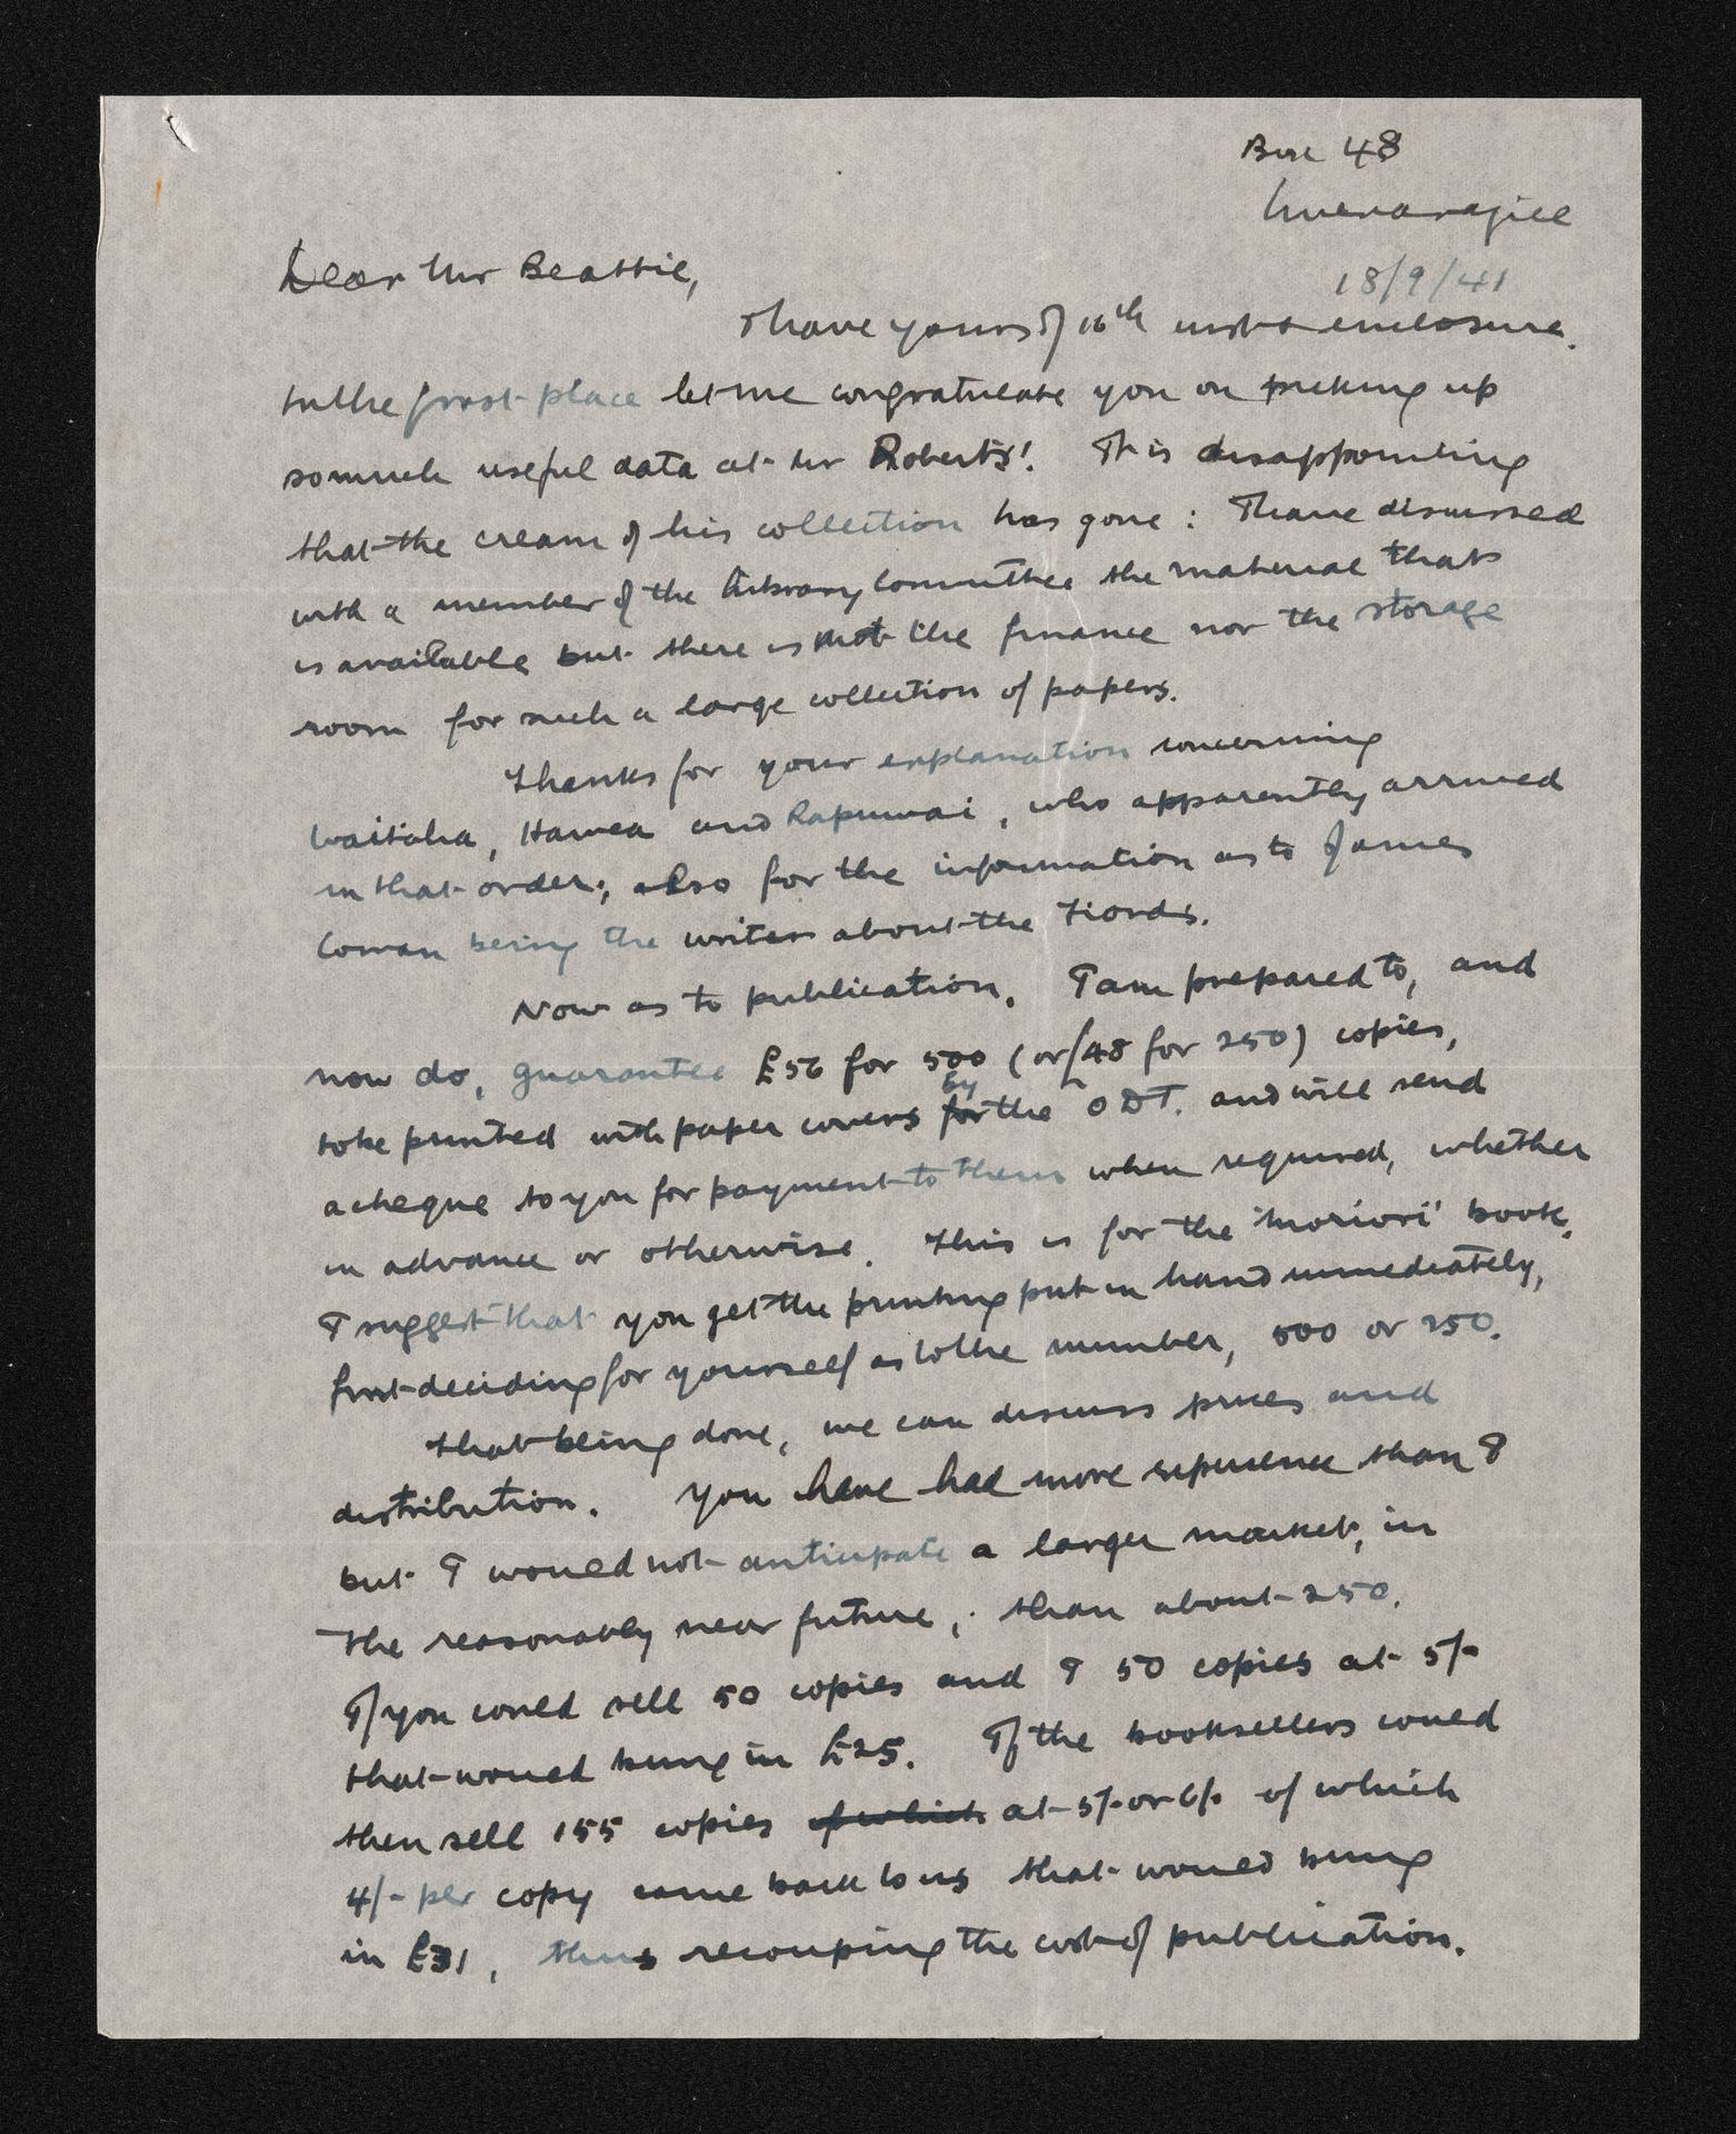 Box 48
Invercargill
18/9/41
Dear Mr Beattie,
I have yours of 16th inst & enclosure.
In the first place let me congratulate you on picking up
so much useful data at Mr Roberts'. It is disappointing
that the cream of his collection has gone: I have discussed
with a member of the Library Committee the material that
is available but there is not the finance nor the storage
room for such a large collection of papers.
Thanks for your explanation concerning
Waitaha, Hawea and Rapuwai, who apparently arrived
in that order; also for the information as to James
Cowan being the writer about the Fiords.
Now as to publication. I am prepared to, and
now do, guarantee £56 for 500 (or £48 for 250) copies,
to be printed with paper covers for by the ODT. and will send
a cheque to you for payment to them when required, whether
in advance or otherwise. This is for the 'Moriori' book.
I suggest that you get the printing put in hand immediately,
first deciding for yourself as to the number, 500 or 250.
That being done, we can discuss prices and
distribution. You have had more experience than I
but I would not anticipate a larger market, in
the reasonably near future, than about 250.
If you could sell 50 copies and I 50 copies at 5/-
that would bring in £25. If the booksellers could
then sell 155 copies of which at 5/- or 6/- of which
4/- per copy came back to us that would bring
in £31, thus recouping the cost of publication.